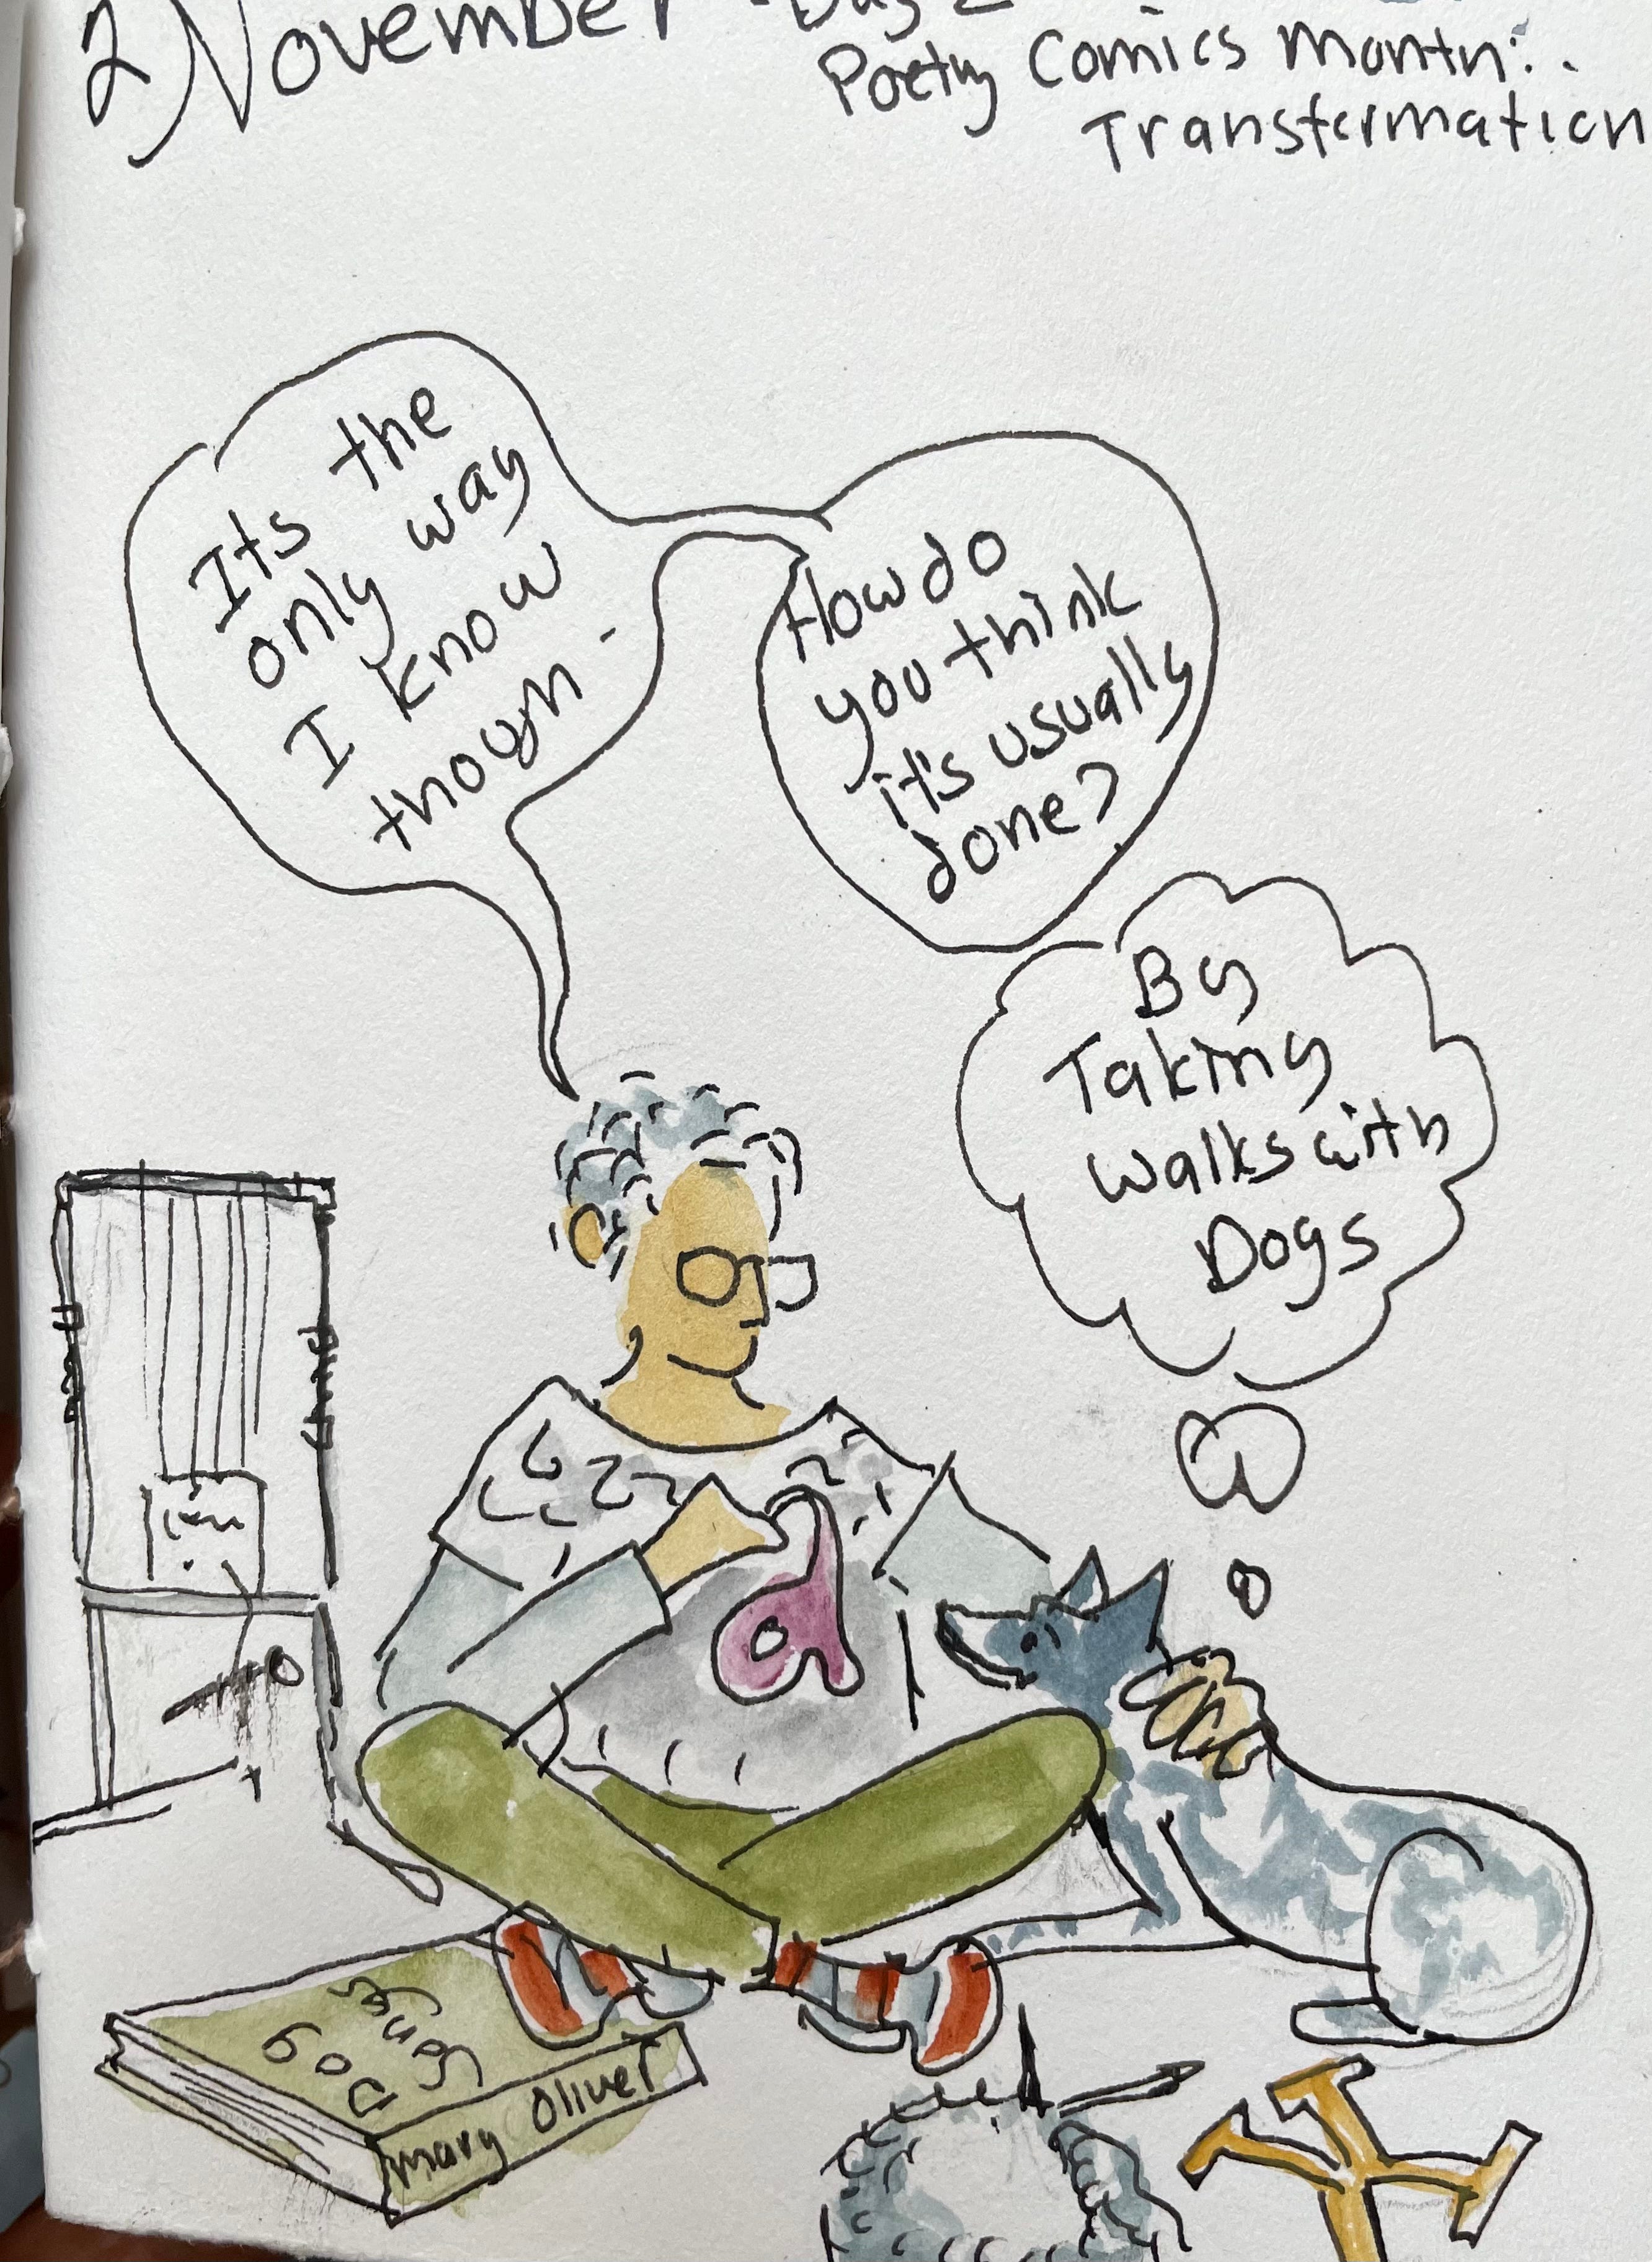 2 November - Day 2
Poetry Comics Month:
Transformation
Its the
only way
I know
though -
How do
you think
it's usually
done?
By
Taking
walks with
Dogs
Dog
Songs
Mary Oliver